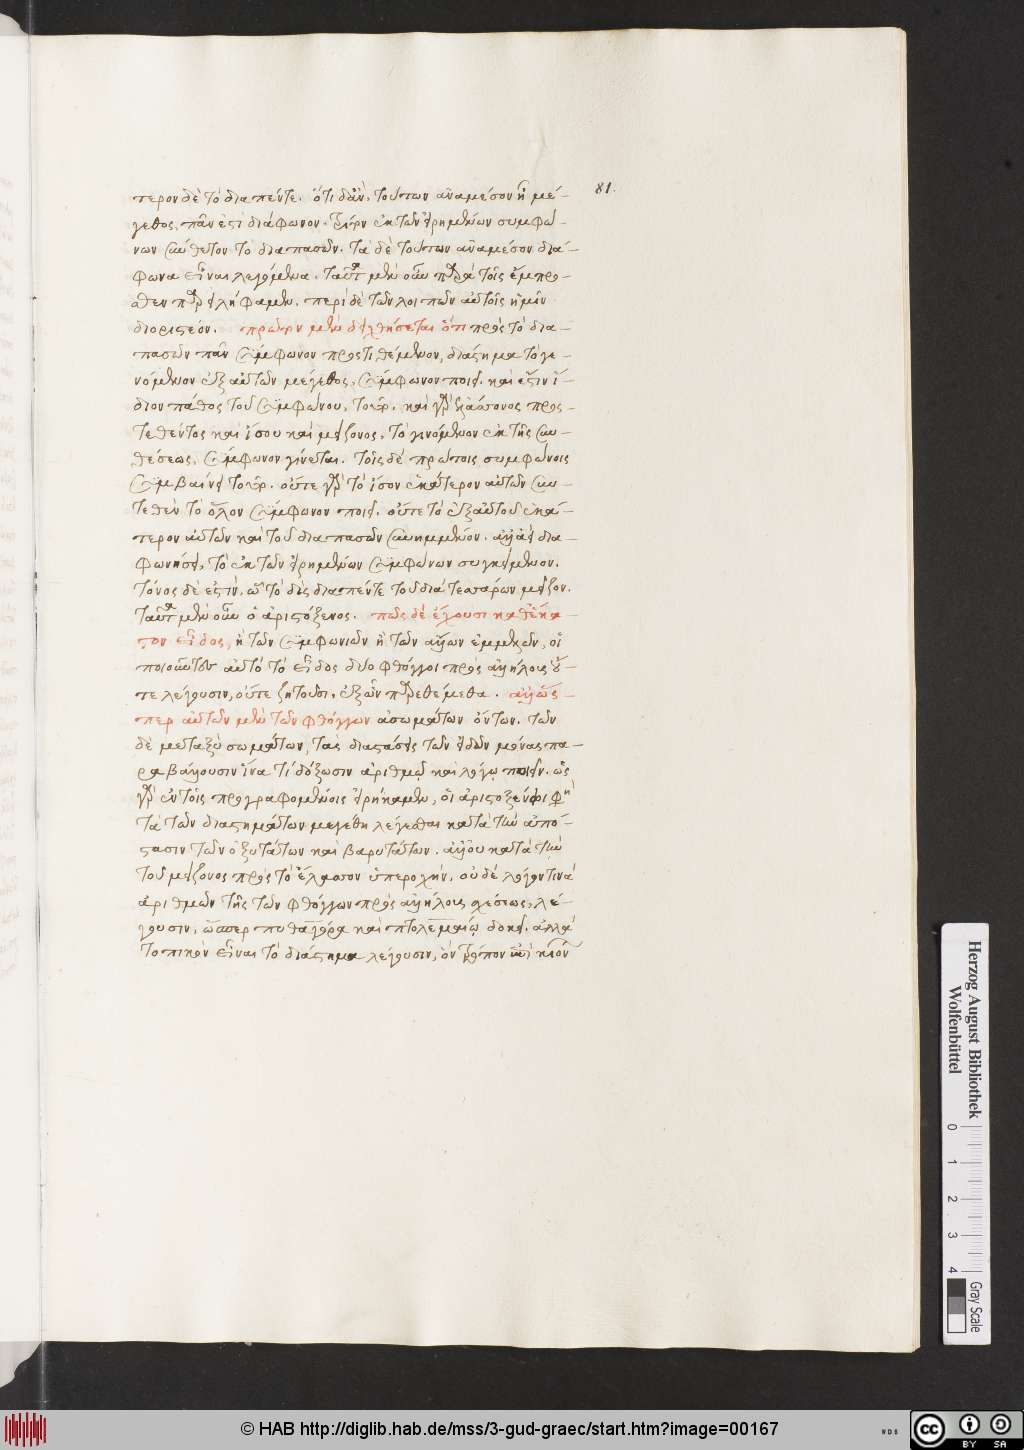 81.
τερον δὲ τὸ διαπέντε. ὅτι δ' ἂν, τούτων ἀναμέσον ἦ μέ-
γεθος, πᾶν ἐστὶ διάφωνον. τρίτον ἐκ τῶν εἰρημένων συμφώ-
νων σύνθετον τὸ διαπασῶν. τὰ δὲ τούτων ἀναμέσον διά-
φωνα εἶναι λεγόμενα. ταῦτα μὲν οὖν παρὰ τοῖς ἔμπρο-
σθεν παρειλήφαμεν. περὶ δὲ τῶν λοιπῶν αὐτοῖς ἡμῖν
διοριστέον. πρῶτον μὲν δειχθήσεται ὅτι πρὸς τὸ δια-
πασῶν πᾶν σύμφωνον προστιθέμενον, διάστημα τὸ γε-
νόμενον ἐξ αὐτῶν μέγεθος, σύμφωνον ποιεῖ. καὶ ἔστιν ἴ-
διον πάθος τοῦ συμφώνου, τοῦτο. καὶ γὰρ ἐλάσσονος προς-
τεθέντος καὶ ἴσου καὶ μείζονος, τὸ γινόμενον ἐκ τῆς συν-
θέσεως, σύμφωνον γίνεται. τοῖς δὲ πρώτοις συμφώνοις
συμβαίνει τοῦτο. οὔτε γὰρ τὸ ἴσον ἑκάτερον αὐτῶν συν-
τεθὲν τὸ ὅλον σύμφωνον ποιεῖ. οὔτε τὸ ἐξ αὐτοῦ ἑκά-
τερον αὐτῶν καὶ τοῦ διαπασῶν συνημμένον. ἀλλ' ἀεὶ δια-
φωνήσει, τὸ ἐκ τῶν εἰρημένων συμφώνων συγκείμενον.
τόνος δὲ ἐστὶν, ὧ τὸ δὶς διαπέντε τοῦ διατεσσάρων μεῖζον.
ταῦτα μὲν οὖν ὁ ἀριστόξενος. πῶς δὲ ἔχουσι καθ' ἕκα-
στον εἶδος, ἢ τῶν συμφωνιῶν ἢ τῶν ἄλλων ἐμμελῶν, οἱ
ποιοῦντες αὐτὸ τὸ εἶδος δύο φθόγγοι πρὸς ἀλλήλους οὔ-
τε λέγουσιν, οὔτε ζητοῦσι, ἐξ ὧν παρεθέμεθα. ἀλλ' ὥς-
περ αὐτῶν μὲν τῶν φθόγγων ἀσωμάτων ὄντων. τῶν
δὲ μεταξὺ σωμάτων, τὰς διαστάσεις τῶν εἰδῶν μόνας πα-
ραβάλλουσιν ἵνα τι δόξωσιν ἀριθμῶ καὶ λόγω ποιεῖν. ὡς
γὰρ ἐν τοῖς προγραφομένοις εἰρήκαμεν, οἱ ἀριστοξένειοι φη
τὰ τῶν διαστημάτων μεγέθη λέγεσθαι κατὰ τὴν ἀπό-
στασιν τῶν ὀξυτάτων καὶ βαρυτάτων. ἀλλ' οὐ κατὰ τὴν
τοῦ μείζονος πρὸς τὸ ἔλασσον ὑπεροχήν. οὐδὲ λόγον τινὰ
ἀριθμῶν τῆς τῶν φθόγγων πρὸς ἀλλήλους σχέσεως, λέ-
γουσιν, ὥσπερ πυθαγόρα καὶ πτολεμαίῳ δοκεῖ. ἀλλὰ
τοπικὸν εἶναι τὸ διάστημα λέγουσιν, ὃν τρόπον κιον
Herzog August Bibliothek
Wolfenbüttel
0 1 2 3 4
Gray Scale
© HAB http://diglib.hab.de/mss/3-gud-graec/start.htm?image=00167
WDB
CC BY SA